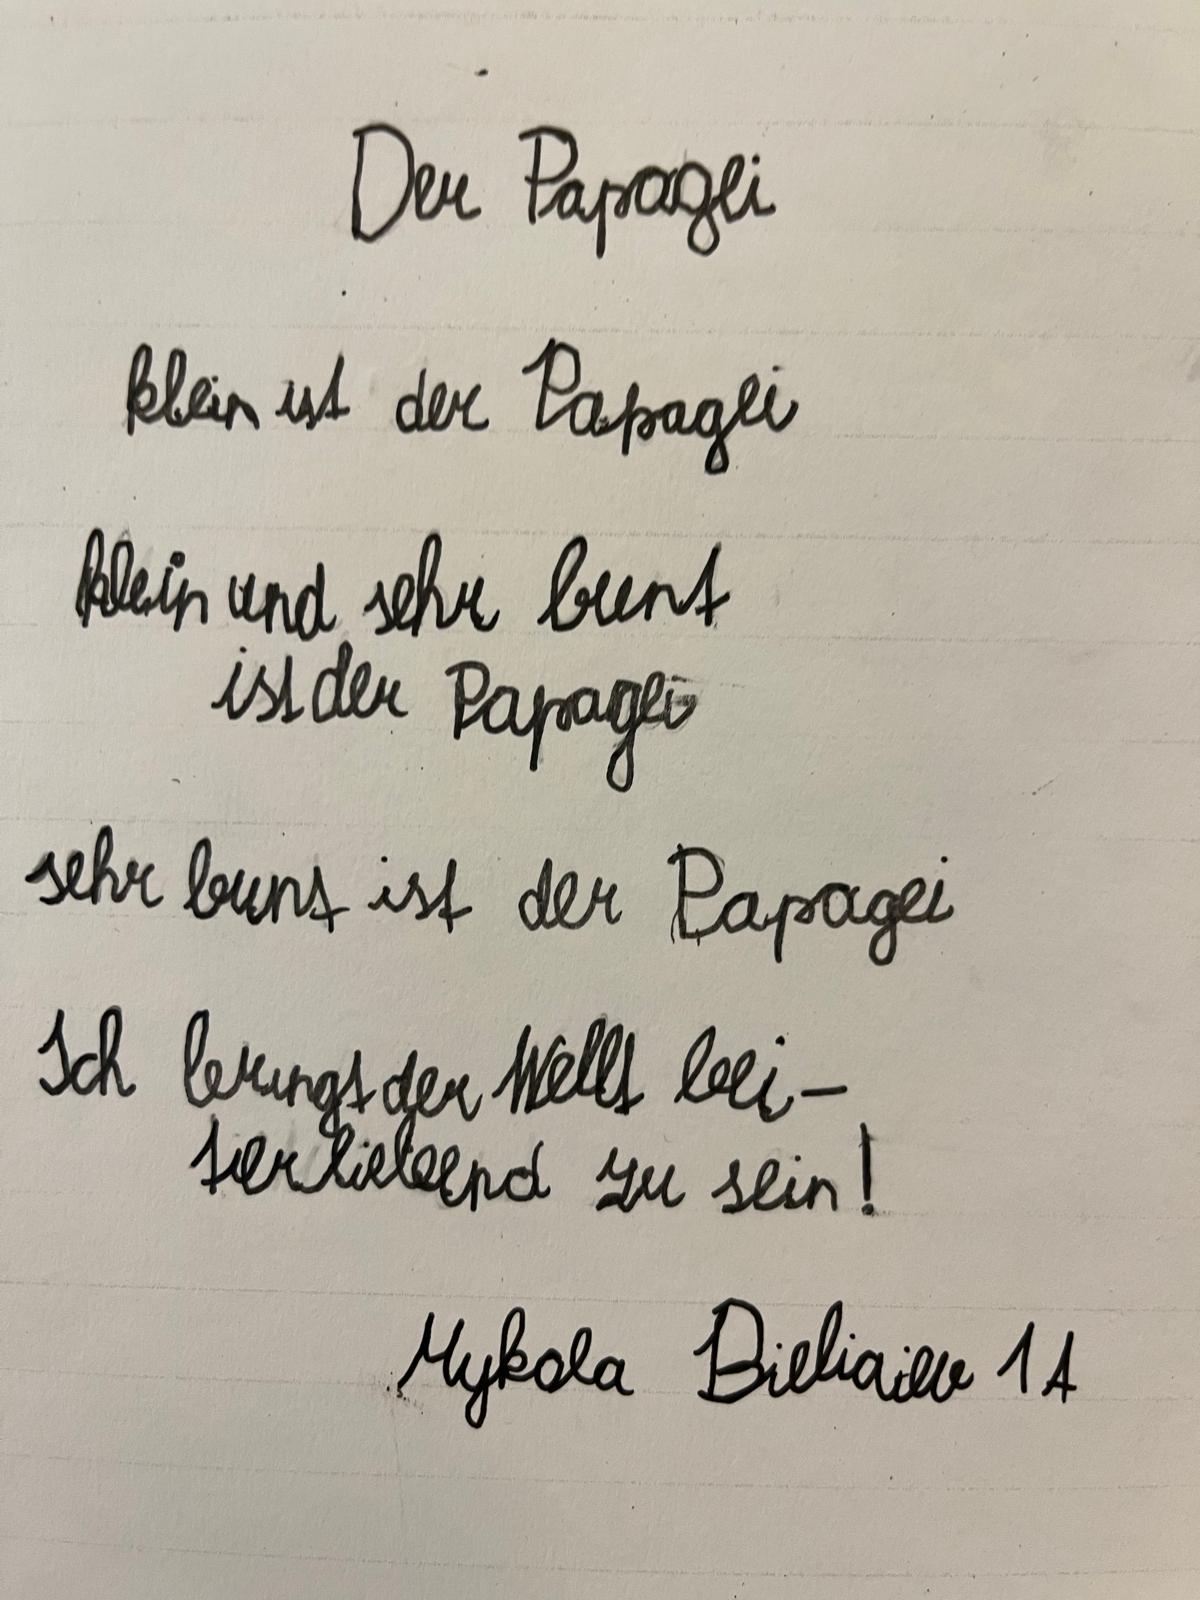 Der Papagei
klein ist der Papagei
klein und sehr bunt
ist der Papagei
sehr bunt ist der Papagei
Ich bringt der Wellt bei -
tierliebend zu sein!
Mykola Bieliaiev 1A